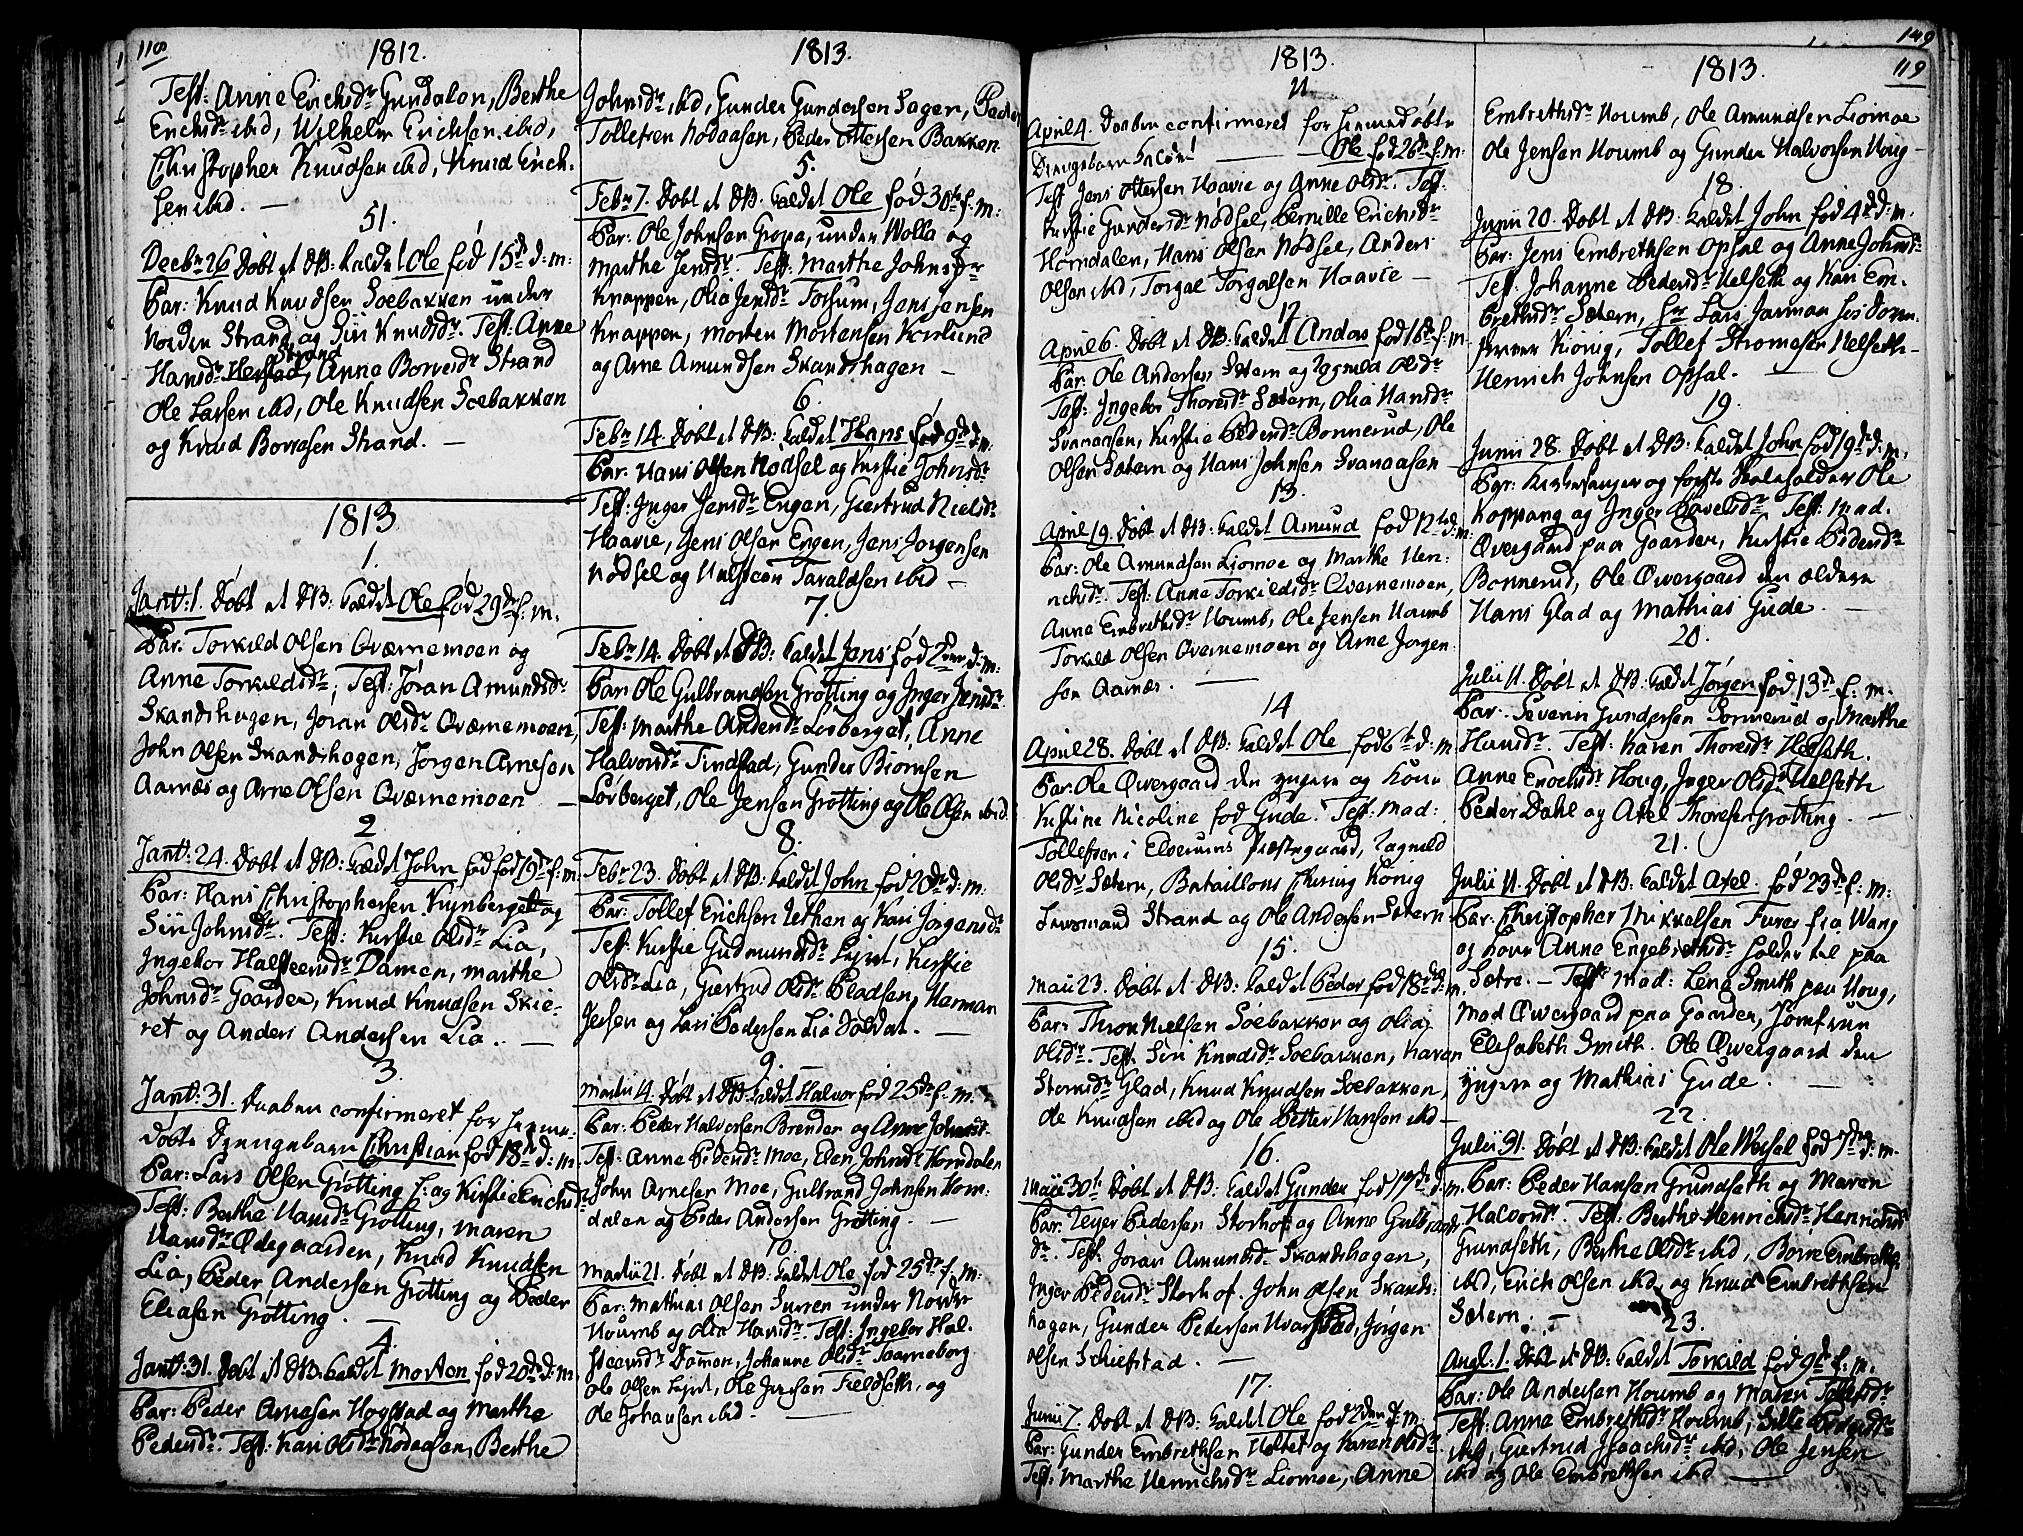 118
1812.
Test: Anne Erichsdr Gundalon, Berthe
Erichsdr ibid, Wilhelm Erichsen ibid,
Christopher Knudsen ibid, Knud Erich-
sen ibid. —
51.
Decbr 26 Døbt et DB: kaldet Ole fød 15de d: m:
Par: Knud Knudsen Soebakken under
Norden Strand og Siri Knudsdr. Test: Anne
Strand
Hansdr Herstad, Anne Borresdr Strand
Ole Larsen ibid, Ole Knudsen Soebakken
og Knud Borresen Strand. —
1813
1.
Jantr: 1. Døbt et DB: kaldet Ole fød 29de f. m.
Par: Torkild Olsen Qværnemoen og
Anne Torkildsdr, Test: Jöran Amundsdr
Skandshagen, Jöran Olsdr Qværnemoen,
John Olsen Skandshagen, Jörgen Arnesen
Aarnæs og Arne Olsen Qværnemoen —
2
Jantr: 24. Døbt et DB: kaldet John fød fød 19de f: m
Par: Hans Christophersen Kynberget og
Siri Johnsdr. Test: Kirstie Olsdr Lia,
Ingebor Halsteensdr Damen, Marthe
Johnsdr Gaarder, Knud Knudsen Skie-
ret og Anders Andersen Lia. —
3.
Jantr: 31. Daaben confirmeret for hjemme-
døbte Drengebarn Christian fød 18de d: m
Par: Lars Olsen Grötting f: og Kirstie Erichsdr
Test: Berthe Hansdr Grötting, Maren
Hansdr Ødegaarden, Knud Knudsen
Lia, Peder Andersen Grötting og Peder
Eliasen Grötting. —
4
Jantr: 31. Døbt et DB: kaldet Morten fød 20de d: m
Par: Peder Arnesen Hogstad og Marthe
Pedersdr. Test: Kari Olsdr Nodaasen, Berthe
1813.
Johnsdr ibid, Gunder Gundersen Sager, Peder
Tollefsen Nodaasen, Peder Ottersen Bakken
5.
Febr 7. Døbt et DB: kaldet Ole fød 30te f: m:
Par: Ole Johnsen Gropa, under Wolla og
Marthe Jensdr. Test: Marthe Johnsdr
Knappen, Olia Jensdr Torsum, Jens Jensen
Knappen, Morten Mortensen
og Arne Amundsen Skandshagen —
6
Febr 14. Døbt et DB: kaldet Hans fød 9de d: m.
Par: Hans Olsen Nödsel og Kirstie Johnsdr
Test: Inger Jensdr Engen, Giertrud Nielsdr
Haavie, Jens Olsen Engen, Jens Jorgensen
Nödsel og Halsteen Taraldsen ibid —
7.
Febr 14. Døbt et DB: kaldet Jens fød 2den d: m:
Par: Ole Gulbrandsen Grötting og Inger Jensdr.
Test: Marthe Andersdr Lövberget, Anne
Halvorsdr Tindstad, Gunder Biörnsen
Lövberget, Ole Jensen Grötting og Ole Olsen ibid.
8.
Febr 23. Døbt et DB: kaldet John fød 20de d: m:
Par: Tollef Erichsen Lethen og Kari Jörgensdr
Test: Kirstie Gudmundsdr Lyset, Kirstie
Olsdr Lia, Giertrud Olsdr Pladsen, Herman
Jensen og Lars Pedersen Lia Soldat. —
9.
Martii 14. Døbt et DB: kaldet Halvor fød 25de f: m.
Par: Peder Halvorsen Brenden og Anne Johnsdr
Test: Anne Pedersdr Moe, Elen Johnsdr Horndalen
John Arnesen Moe, Gulbrand Johnsen Horn-
dalen og Peder Andersen Grötting. —
10.
Martii 21. Døbt et DB: kaldet Ole fød 25de f: m:
Par: Mathias Olsen Surren under Nordre
Houmb og Olia Hansdr. Test: Ingebor Hal-
steensdr Damen, Johanne Olsdr Taarneborg
Ole Olsen Lyset, Ole Jensen Fieldseth, og
Ole Johansen ibid. —
1813.
11
April 4. Daaben confirmeret for hjemmedøbte
Drengebarn kaldet — Ole fød 26de f: m.
Test Jens Ottersen Haavie og Anne Olsdr. Test:
Kirstie Gundersdr Nödsel, Pernille Erichsdr
Horndalen, Hans Olsen Nödsel, Anders
Olsen ibid, Torgal Torgalsen Haavie —
12
April 6. Døbt et DB: kaldet Anders fød 16de f: m
Par: Ole Andersen Sætern og Ragnild Olsdr
Test: Ingebor Thoresdr Sætern, Olia Hansdr
Svanaasen, Kirstie Pedersdr Bonnerud, Ole
Olsen Sætern og Hans Johnsen Svanaasen
13.
April 19. Døbt et DB: kaldet Amund fød 12te d: m.
Par: Ole Amundsen Liomoe og Marthe Hen-
richsdr. Test: Anne Torkildsdr Qvernemoen,
Anne Embrethsdr Houmb, Ole Jensen Houmb
Torkild Olsen Qvernemoen og Arne Jorgen-
sen Aarnæs. —
14
April 28. Døbt et DB: kaldet Ole fød 6te d: m
Par: Ole Qvergaard den yngere og Kone
Kirstine Nicoline fød Gude. Test: Mad:
Tollefsen i Elverums Præstegaard, Ragnild
Olsdr Sætern, Bataillons Chirurg König
Strand og Ole Andersen Sætern
15.
Maii 23. Døbt et DB: kaldet Peder fød 18de d: m.
Par: Thron Nielsen Soebakken og Olia
Olsdr. Test. Siri Knudsdr Soebakken, Karen
Glad, Knud Knudsen Soebakken,
Ole Knudsen ibid og Ole Petter Hansen ibid —
16.
Maii 30te Døbt et DB: kaldet Gunder fød 17de d: m.
Par: Reyer Pedersen Storhof og Anne Gulbrands-
dr. Test. Jöran Amundsdr Skandshagen,
Inger Pedersdr Storhof. John Olsen Skands-
hagen, Gunder Pedersen Hvarstad, Jörgen
Olsen Schiefstad. —
17.
Junii 7. Døbt et DB: kaldet Ole fød 2den d: m.
Par: Gunder Embrethsen Holtet og Karen Olsdr.
Test: Marthe Henrichsdr Liomoe, Anne
149
119
1813.
Embrethsdr Houmb, Ole Amundsen Liomoe
Ole Jensen Houmb og Gunder Halvorsen Houg —
18.
Junii 20. Døbt et DB: kaldet John fød 4de d: m.
Par: Jens Embrethsen Opsal og Anne Johnsdr
Test: Johanne Pedersdr Helseth og Kari Em-
brethsdr Sætern, Hr Lars Jarman
König, Tollef Helseth —
Henrich Johnsen Opsal. —
19.
Junii 28. Døbt et DB: kaldet John fød 19de d: m.
Par: Kirkesanger og første Skoleholder Ole
Koppang og Inger Povelsdr. Test: Mad.
Qvergaard paa Gaarder, Kirstie Pedersdr
Bonnerud, Ole Qvergaard den ældere
Hans Glad og Mathias Gude. —
20.
Julii 11. Døbt et DB: kaldet Jörgen fød 13de f: m.
Par: Severin Gundersen Sonnerud og Marthe
Hansdr. Test: Karen Thoresdr Helseth.
Anne Enochsdr Houg, Inger Olsdr Helseth
Peder Dahl og Axel Thoresen Grötting. —
21.
Julii 11. Døbt et DB: kaldet Axel. fød 23de f: m:
Par: Christopher Mikkelsen Furer fra Wang
og kone Anne Engebrethsdr holder til paa
Sætre. — Test: Mad: Lena Smith paa Houg,
Mad Qvergaard paa Gaarder, Jomfrue
Elisabeth Smith. Ole Qvergaard den
yngere og Mathias Gude. —
22.
Julii 31. Døbt et DB: kaldet Ole Wessel fød 7de d: m.
Par: Peder Hansen Grundseth og Maren
Halvorsdr. Test: Berthe Henrichsdr
Grundseth, Berthe Olsdr ibid, Börre Embrethsen
ibid, Erich Olsen ibid, og Knud Embrethsen
Sætern. —
23.
Augl: 1. Døbt et DB: kaldet Torkild fød 9de f: m.
Par: Ole Andersen Houmb og Maren Tollefsdr
Test: Anne Embrethsdr Houmb, Sille Pedersdr
ibid, Giertrud Isaachsdr ibid, Ole Jensen
ibid og Ole Embrethsen ibid —